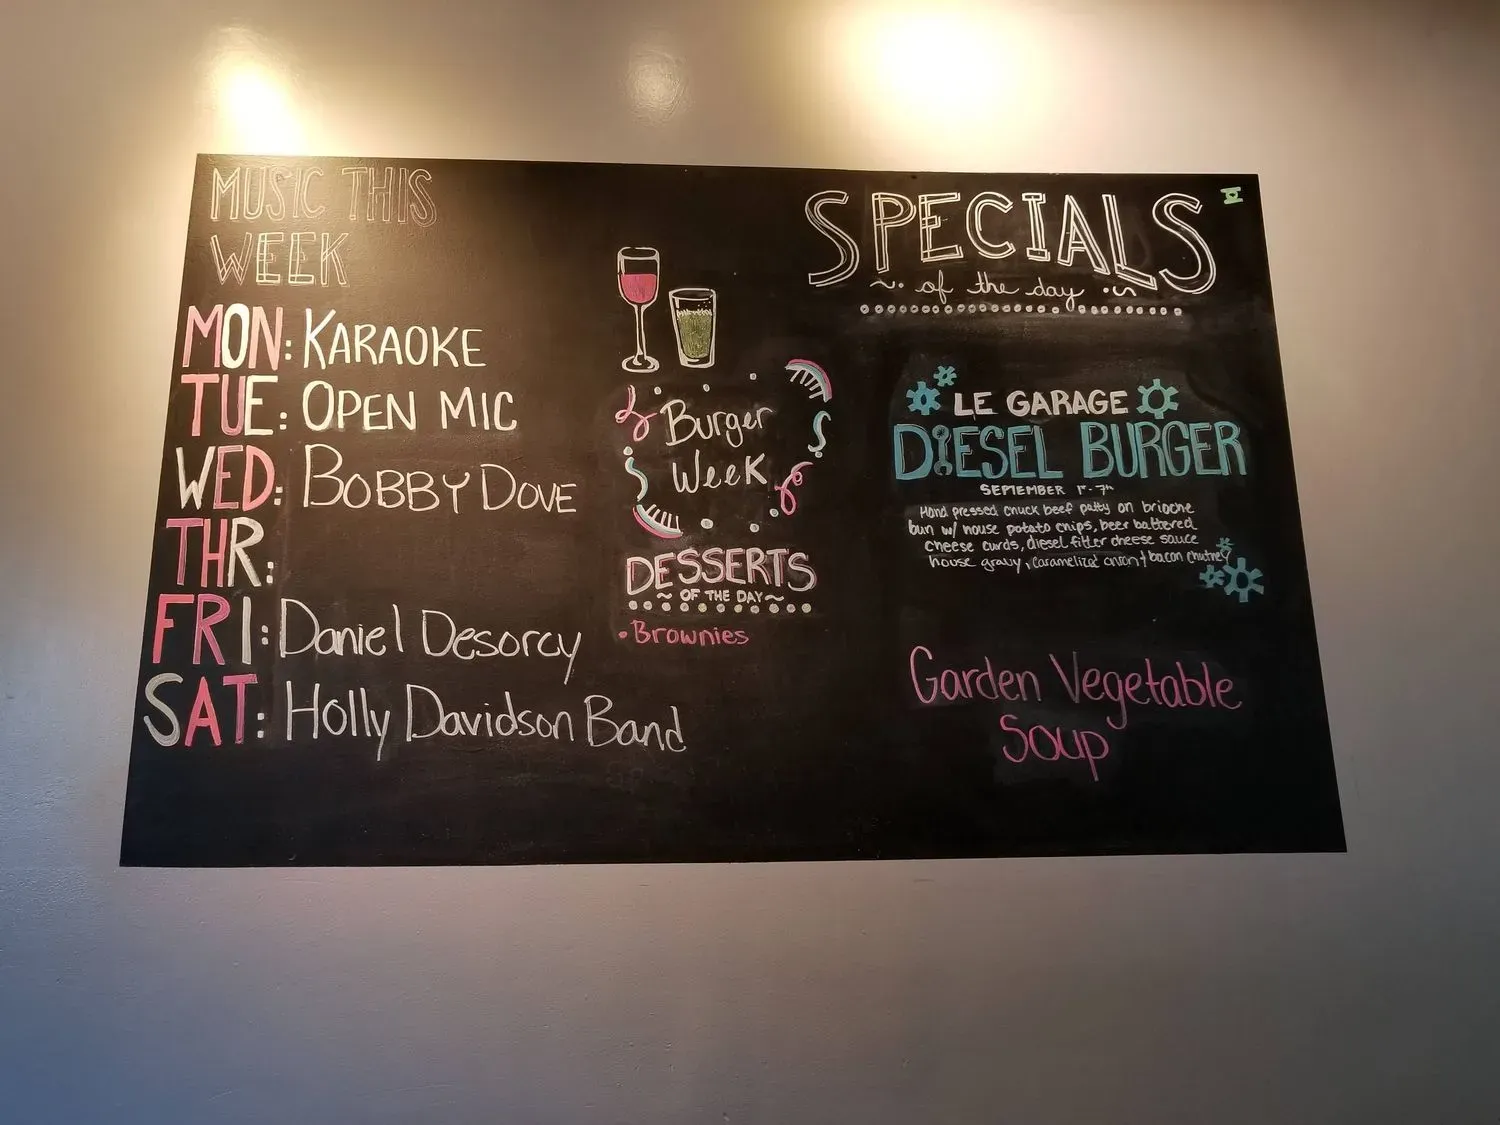 MUSIC THIS
WEEK
MON: KARAOKE
TUE: OPEN MIC
WED: BOBBY DOVE
THR:
FRI: Daniel Desorcy
SAT: Holly Davidson Band
Burger
Week
DESSERTS
~ OF THE DAY ~
• Brownies
SPECIALS
~· of the day ·~
LE GARAGE
DIESEL BURGER
SEPTEMBER 1st - 7th
Hand pressed chuck beef patty on brioche
bun w/ house potato chips, beer battered
cheese curds, diesel fitter cheese sauce
house gravy, caramelized onion + bacon chutney
Garden Vegetable
Soup